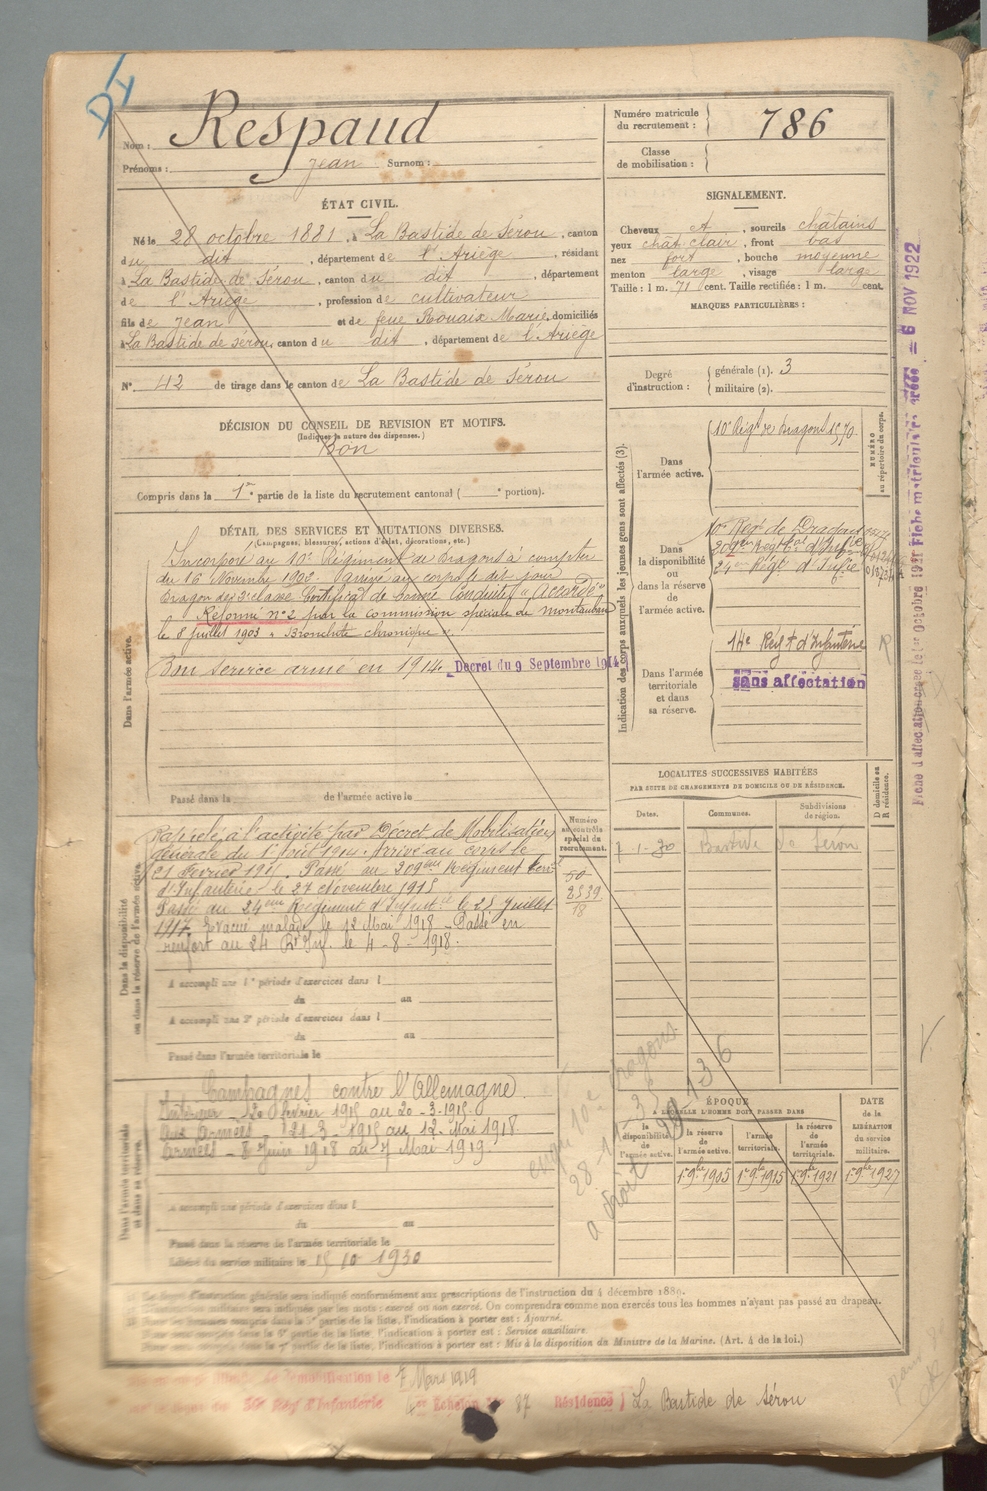 Nom : Respaud
Prénoms : Jean Surnom :
Numéro matricule du recrutement : 786
Classe de mobilisation :
ÉTAT CIVIL.
Né le 28 octobre 1881, à La Bastide de Sérou, canton
du dit, département de l'Ariège, résidant
à La Bastide de Sérou, canton du dit, département
de l'Ariège, profession de cultivateur
fils de Jean et de feue Rouaix Marie, domiciliés
à La Bastide de Sérou, canton du dit, département de l'Ariège
N° 42 de tirage dans le canton de La Bastide de Sérou
SIGNALEMENT.
Cheveux et, sourcils châtains
yeux chât clair, front bas
nez fort, bouche moyenne
menton large, visage large
Taille : 1 m. 71 cent. Taille rectifiée : 1 m. cent.
MARQUES PARTICULIÈRES :
Degré d'instruction : générale (1). 3
militaire (2).
DÉCISION DU CONSEIL DE REVISION ET MOTIFS.
(Indiquer la nature des dispenses.)
Bon
Compris dans la 1re partie de la liste du recrutement cantonal ( e portion).
DÉTAIL DES SERVICES ET MUTATIONS DIVERSES.
(Campagnes, blessures, actions d'éclat, décorations, etc.)
Dans l'armée active.
Incorporé au 10e Régiment de Dragons à compter
du 16 Novembre 1902. Arrivé au corps le dit jour
Dragon de 2e classe. Certificat de bonne conduite "Accordé"
Réformé n°2 par la commission spéciale de Montauban
le 8 juillet 1903 « Bronchite chronique ».
Bon service armé en 1914. Décret du 9 Septembre 1914
Passé dans la de l'armée active le
Indication des corps auxquels les jeunes gens sont affectés (3).
NUMÉRO au répertoire du corps.
Dans l'armée active.
10e Régt de Dragons 1570
Dans la disponibilité ou dans la réserve de l'armée active.
10e Régt de Dragons
209e Régt d'Infie
24ème Régt d'Infie
Dans l'armée territoriale et dans sa réserve.
14e Régt d'Infanterie
Sans affectation
R
LOCALITÉS SUCCESSIVES HABITÉES
PAR SUITE DE CHANGEMENTS DE DOMICILE OU DE RÉSIDENCE.
Dates. Communes. Subdivisions de région. D domicile ou R résidence.
7-1-30 Bastide de Sérou
Dans la disponibilité ou dans la réserve de l'armée active.
Numéro au contrôle spécial du recrutement.
Rappelé à l'activité par Décret de Mobilisation
générale du 1er Août 1914. Arrivé au corps le
21 février 1915. Passé au 209ème Régiment
d'Infanterie le 27 Novembre 1915
Passé au 24ème Régiment d'Infant. le 25 Juillet
1917. Evacué malade le 12 Mai 1918 - Passé en
renfort au 24 Rt Inf. le 4-8-1918.
50
2539
18
A accompli une 1re période d'exercices dans l
du au
A accompli une 2e période d'exercices dans l
du au
Passé dans l'armée territoriale le
Dans l'armée territoriale et dans sa réserve.
Campagnes contre l'Allemagne
Intérieur - 20 février 1915 au 20-3-1915.
Aux Armées 21-3-1915 au 12 Mai 1918.
Armées - 8 Juin 1918 au 7 Mai 1919.
A accompli une période d'exercices dans l
du au
Passé dans la réserve de l'armée territoriale le
Libéré du service militaire le 15 10 1930
ÉPOQUE
A LAQUELLE L'HOMME DOIT PASSER DANS
la disponibilité de l'armée active. la réserve de l'armée active. l'armée territoriale. la réserve de l'armée territoriale.
DATE de la LIBÉRATION du service militaire.
1er 9bre 1905 1er 9bre 1915 1er 9bre 1921 1er 9bre 1927
(1) Le degré d'instruction générale sera indiqué conformément aux prescriptions de l'instruction du 4 décembre 1889.
(2) L'instruction militaire sera indiquée par les mots : exercé ou non exercé. On comprendra comme non exercés tous les hommes n'ayant pas passé au drapeau.
partie de la liste, l'indication à porter est : Ajourné.
partie de la liste, l'indication à porter est : Service auxiliaire.
partie de la liste, l'indication à porter est : Mis à la disposition du Ministre de la Marine. (Art. 4 de la loi.)
7 Mars 1919
Échelon N° 87 Résidence) La Bastide de Sérou